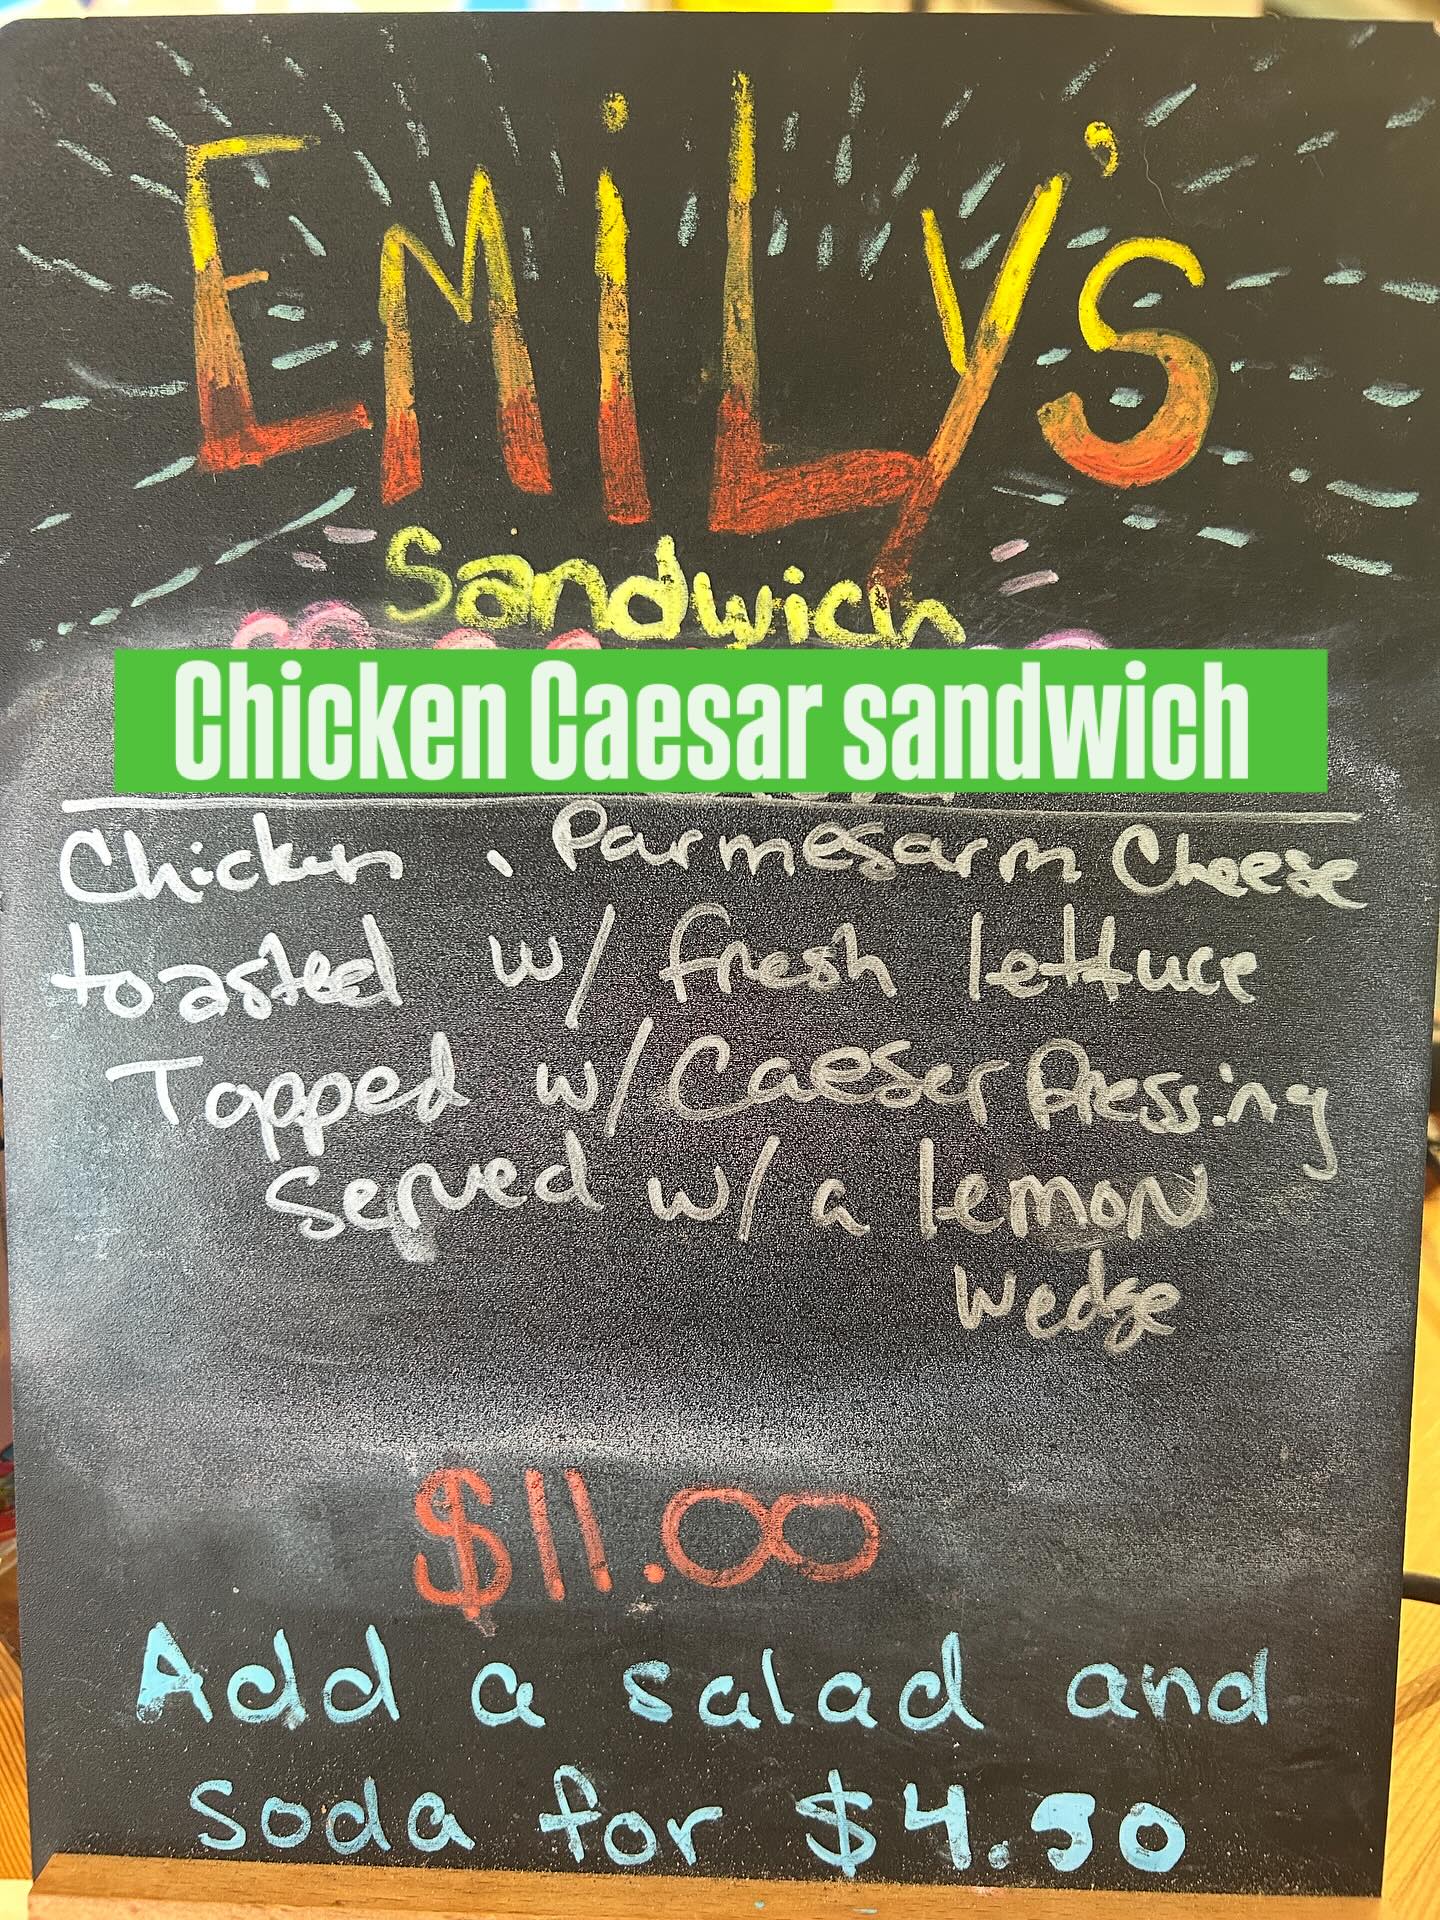 EMiLy's
Sandwich
Chicken Caesar sandwich
Chicken, Parmesarm Cheese
toasted w/ fresh lettuce
Topped w/ Caeser Dressing
Served w/ a lemon
Wedge
$11.00
Add a salad and
soda for $4.50